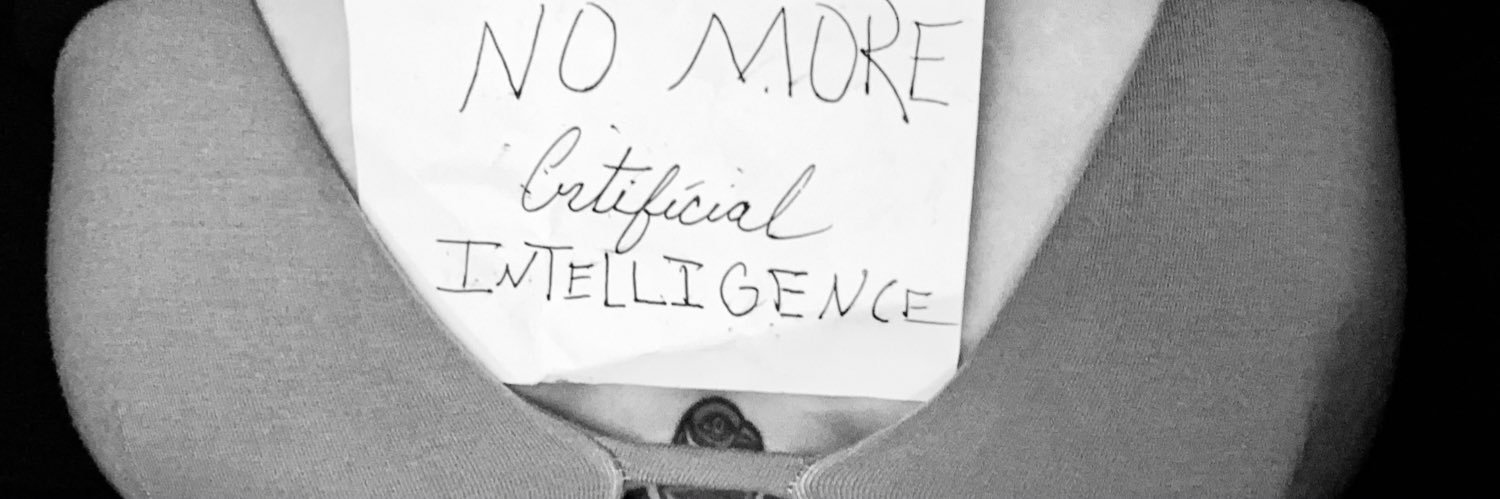 NO MORE
Artificial
INTELLIGENCE